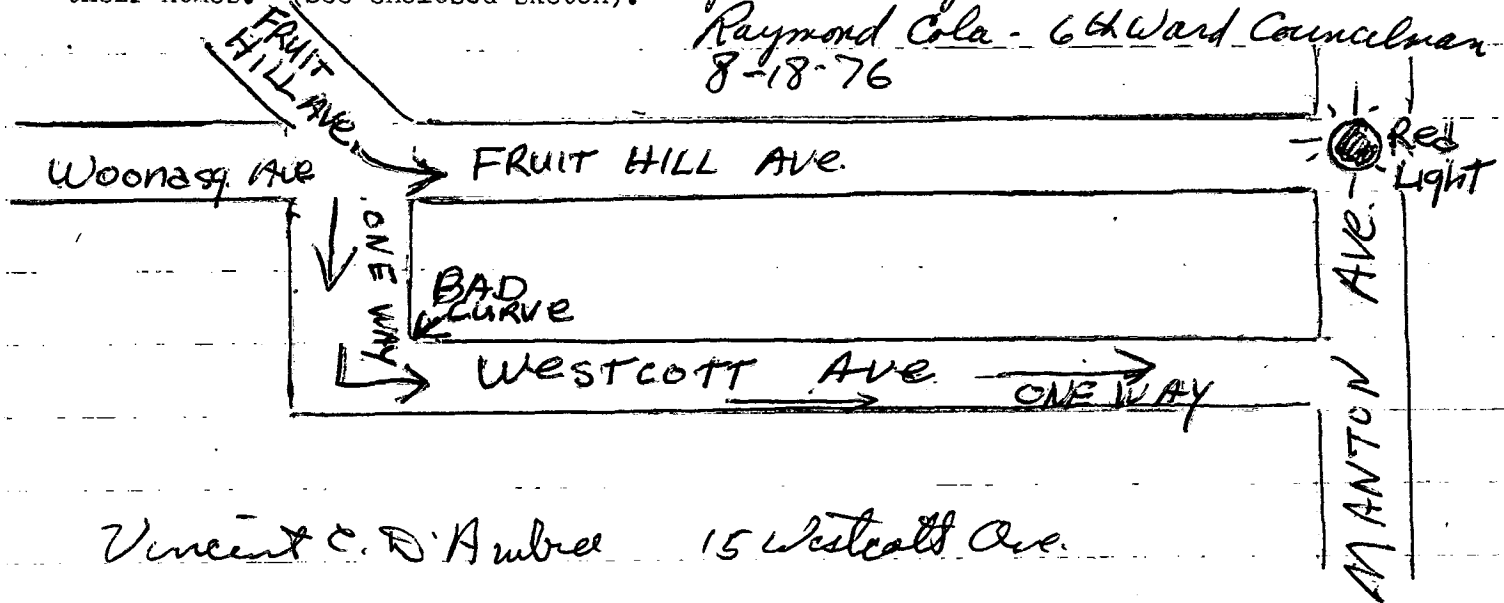 their homes. (See enclosed sketch).
Raymond Cola - 6th Ward Councilman
8-18-76
FRUIT
HILL AVE.
Woonasq. Ave
FRUIT HILL AVE.
Red
Light
ONE WAY
BAD
CURVE
WESTCOTT AVE.
ONE WAY
MANTON AVE.
Vincent C. D'Ambra 15 Westcott Ave.